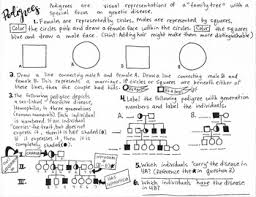 Pedigrees
Pedigrees are visual representations of a "family tree" with a
typical focus on genetic disease.
1. Females are represented by circles, Males are represented by squares.
Color the circles pink and draw a female face within the circles. Color the squares
blue and draw a male face. (Hint: Adding hair might make them more distinguishable)
2. Draw a line connecting male and female A. Draw a line connecting male B and
female B. This represents a marriage. If circles or squares are beneath either of
these lines, then the couple had kids.
3. The following pedigree depicts
a sex-linked recessive disease,
Hemophilia, in three generations
(roman numerals). Each individual
is numbered. If an individual
"carries" the trait, but does not
express it, then it is half shaded
If an individual expresses it, it is
completely shaded
4. Label the following pedigree with generation
numbers and label the individuals.
A.
B.
I.
II.
III.
5. Which individuals "carry" the disease in
4A? (Reference the * in question 3)
6. Which individuals have the disease
in 4B?